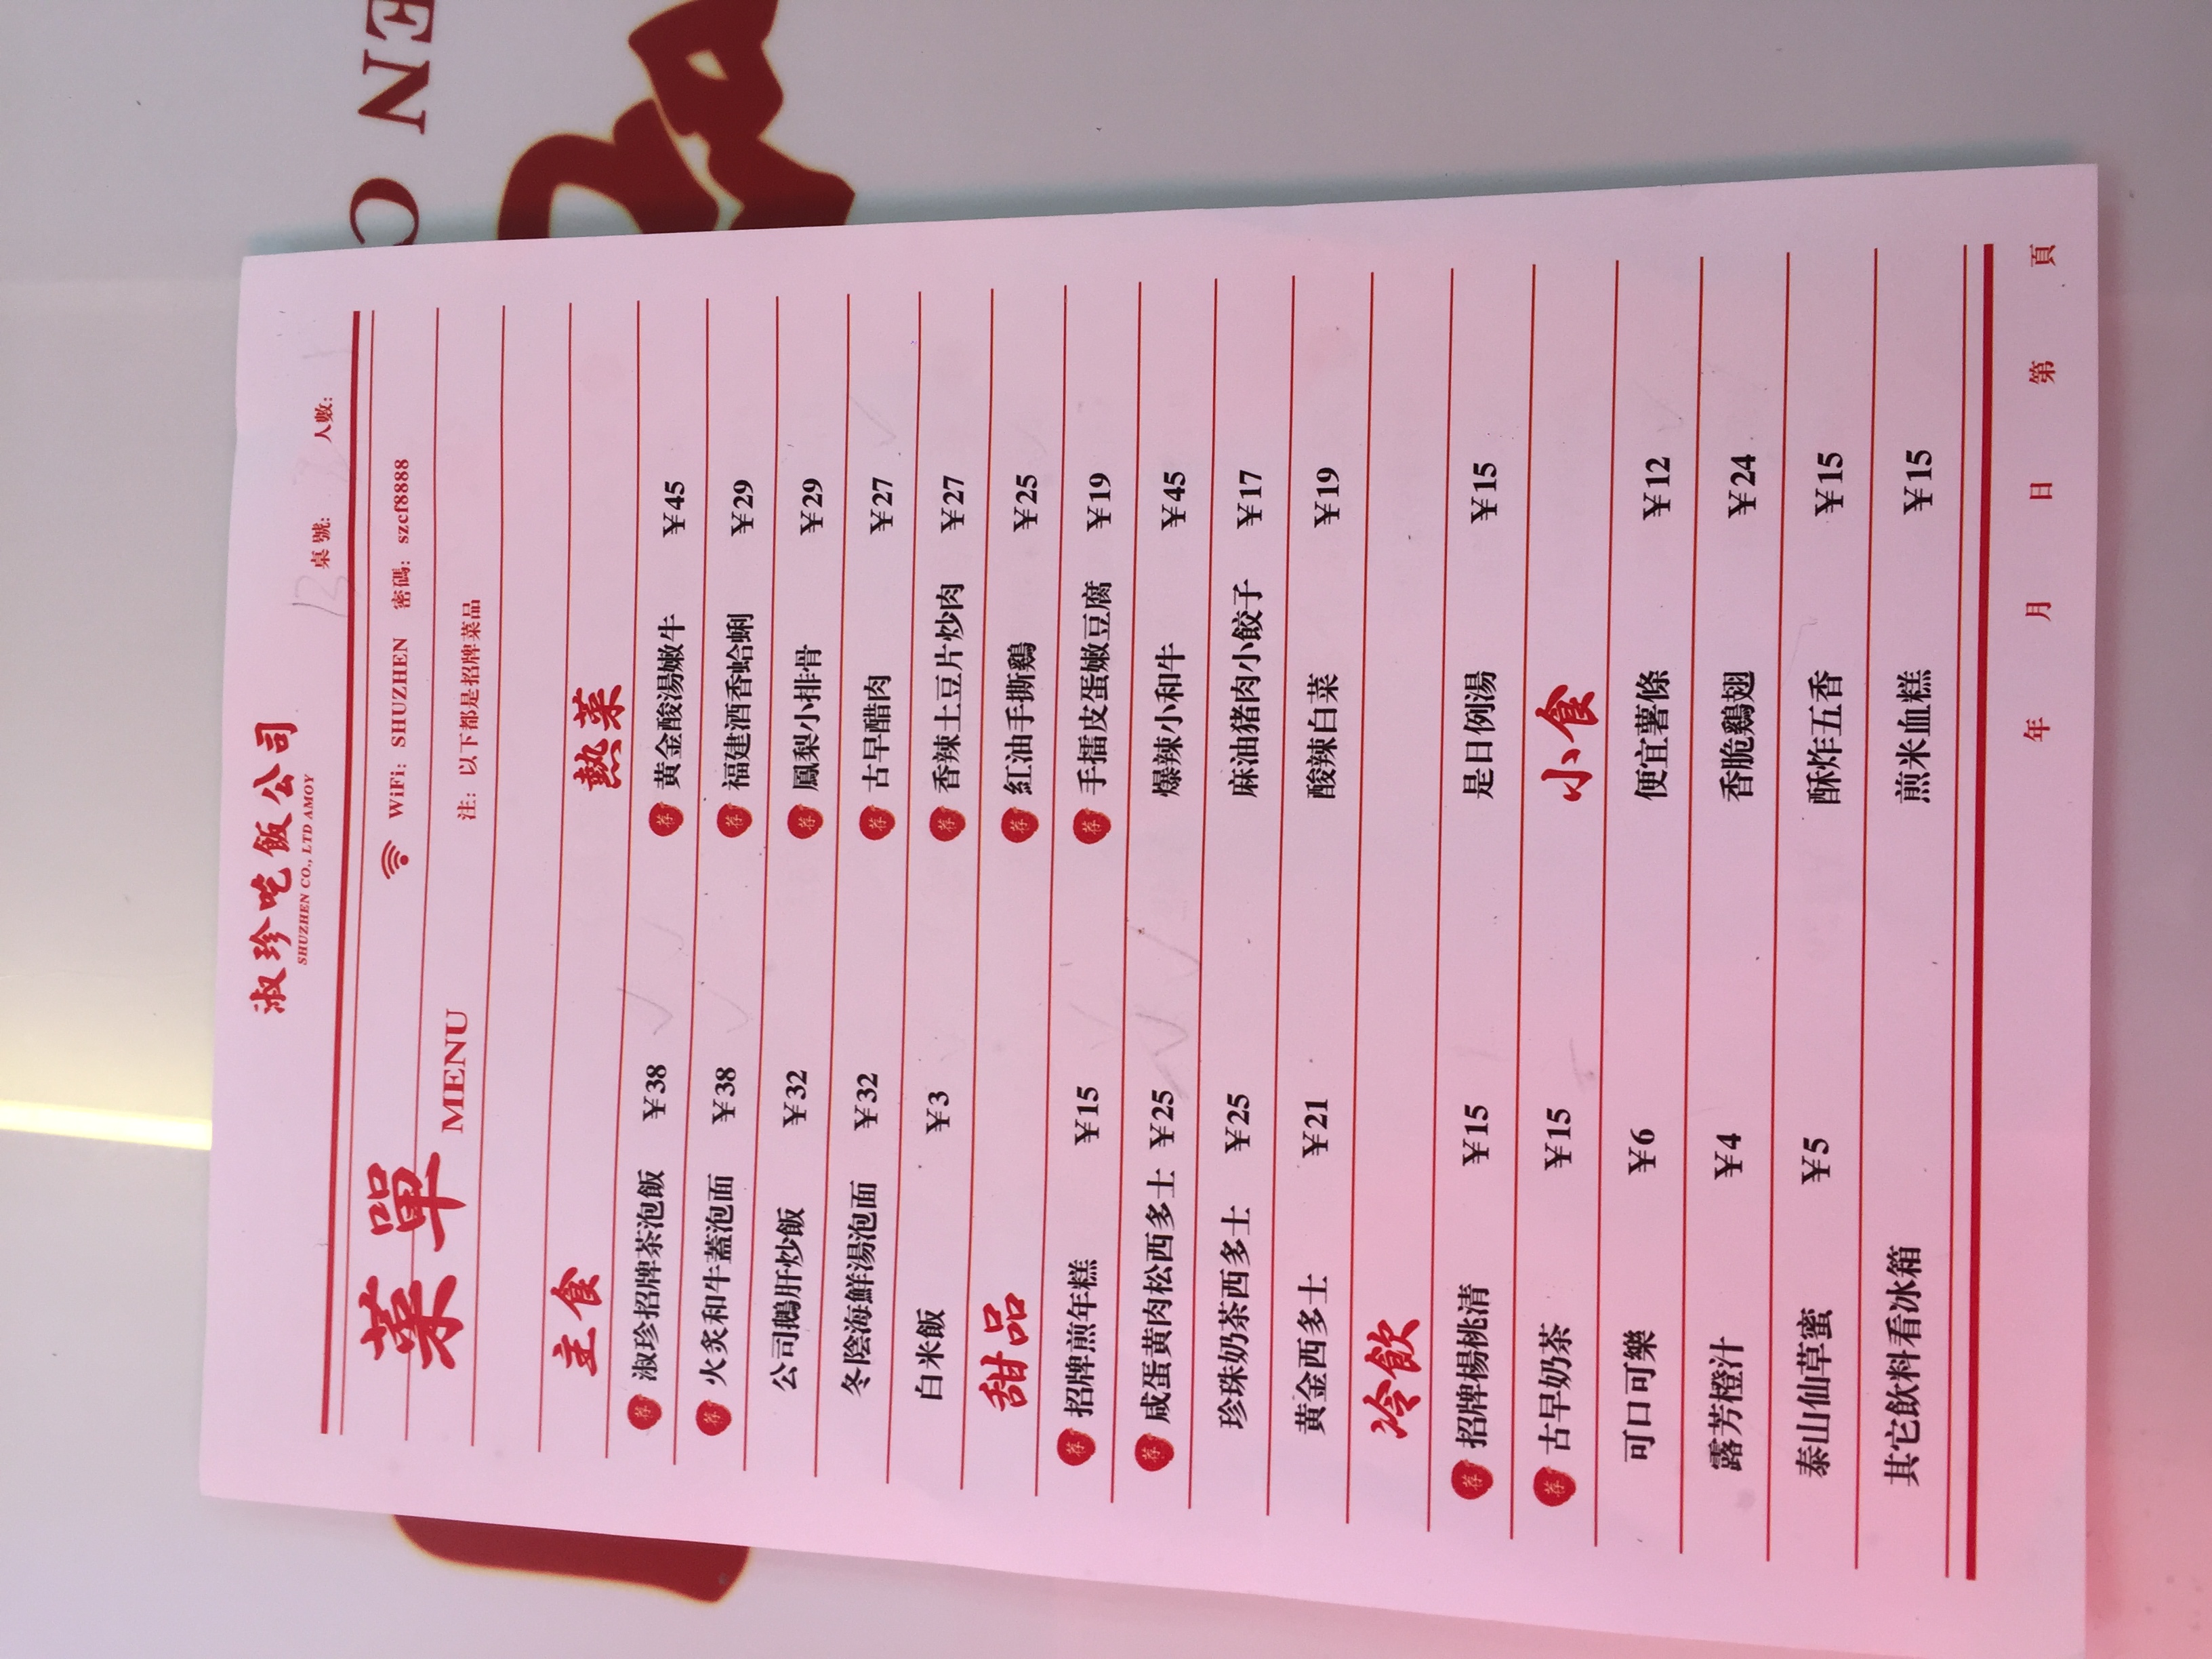 EN C
淑珍吃飯公司
SHUZHEN CO., LTD AMOY
桌號: 人數:
菜單
MENU
WiFi: SHUZHEN 密碼: szcf8888
注: 以下都是招牌菜品
主食
荐 淑珍招牌茶泡飯 ¥38
荐 火炙和牛蓋泡面 ¥38
公司鵝肝炒飯 ¥32
冬陰海鮮湯泡面 ¥32
白米飯 ¥3
甜品
荐 招牌煎年糕 ¥15
荐 咸蛋黄肉松西多士 ¥25
珍珠奶茶西多士 ¥25
黄金西多士 ¥21
冷飲
荐 招牌楊桃清 ¥15
荐 古早奶茶 ¥15
可口可樂 ¥6
露芳橙汁 ¥4
泰山仙草蜜 ¥5
其它飲料看冰箱
熱菜
荐 黄金酸湯嫩牛 ¥45
荐 福建酒香蛤蜊 ¥29
荐 鳳梨小排骨 ¥29
荐 古早醋肉 ¥27
荐 香辣土豆片炒肉 ¥27
荐 紅油手撕鷄 ¥25
荐 手擂皮蛋嫩豆腐 ¥19
爆辣小和牛 ¥45
麻油猪肉小餃子 ¥17
酸辣白菜 ¥19
是日例湯 ¥15
小食
便宜薯條 ¥12
香脆鷄翅 ¥24
酥炸五香 ¥15
煎米血糕 ¥15
年 月 日 第 頁